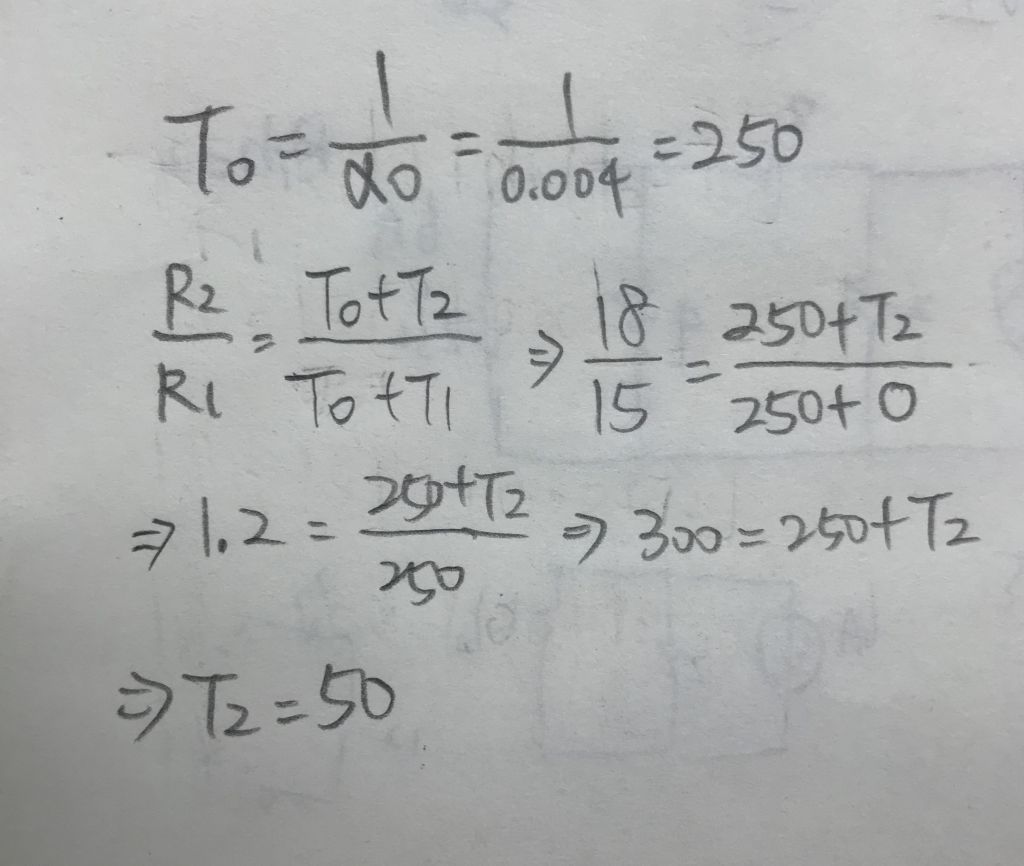 T₀ = 1/α0 = 1/0.004 = 250
R2/R1 = (T₀+T₂)/(T₀+T₁) ⇒ 18/15 = (250+T₂)/(250+0)
⇒ 1.2 = (250+T₂)/250 ⇒ 300 = 250+T₂
⇒ T₂ = 50